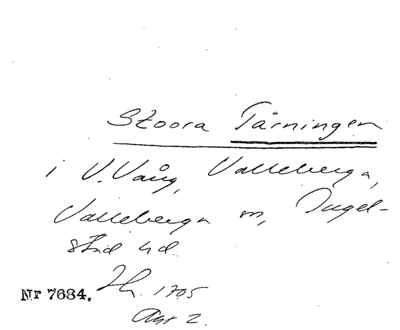 Stoora Tärningen
i V. Vång, Valleberga,
Valleberga sn, Ingel-
stad hd.
Nr 7684. Lh. 1705
Akt 2.